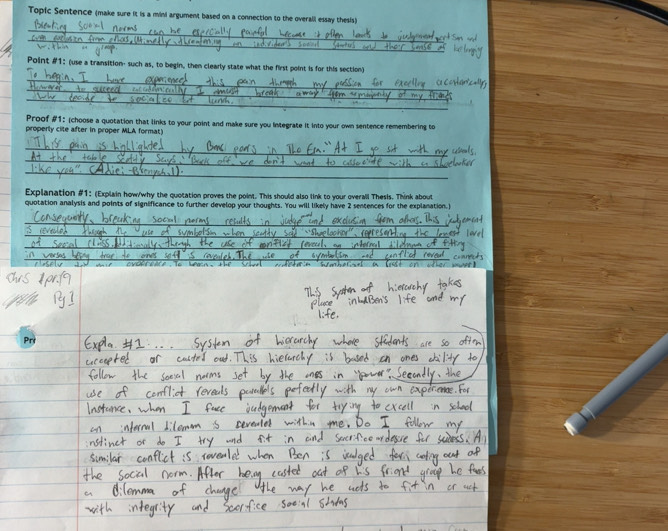 Topic Sentence (make sure it is a mini argument based on a connection to the overall essay thesis)
Breaking social norms can be especially painful because it often leads to judgement and
exclusion from others, ultimately threatening an individual's social status and their sense of belonging
within a group.
Point #1: (use a transition- such as, to begin, then clearly state what the first point is for this section)
To begin, I have experienced this pain through my passion for excelling academically,
However to succeed academically I almost break away from a majority of my friends
who decide to socialize at lunch.
Proof #1: (choose a quotation that links to your point and make sure you integrate it into your own sentence remembering to
properly cite after in proper MLA format)
This pain is highlighted by Ben's peers in The Elm. "At I go sit with my usuals.
At the table Scotty says, "Back off we don't want to associate with a shoelooker
like you"
Explanation #1: (Explain how/why the quotation proves the point. This should also link to your overall Thesis. Think about
quotation analysis and points of significance to further develop your thoughts. You will likely have 2 sentences for the explanation.)
Consequently, breaking social norms results in judgement and exclusion from others. This judgement
is revealed through the use of symbolism when Scotty says "Shoelooker", representing the lowest level
of social class. Additionally, through the use of conflict reveals an internal dilemma of fitting
in versus being true to ones self is revealed. The use of symbolism and conflict reveal connects
This system of hierarchy takes
place in both Ben's life and my
life.
Pg 1
Pr
Expla. #1.... System of hierarchy where students are so often
accepted or casted out. This hierarchy is based on ones ability to
follow the social norms set by the ones in "power". Secondly, the
use of conflict reveals parallels perfectly with my own experience. For
Instance, when I face judgement for trying to excell in school
an internal dilemma is revealed within me. Do I follow my
instinct or do I try and fit in and sacrifice desire for success. A
similar conflict is revealed when Ben is judged for acting out of
the social norm. After being casted out of his friend group he faces
a Dilemma of change the way he acts to fit in or act
with integrity and sacrifice social status